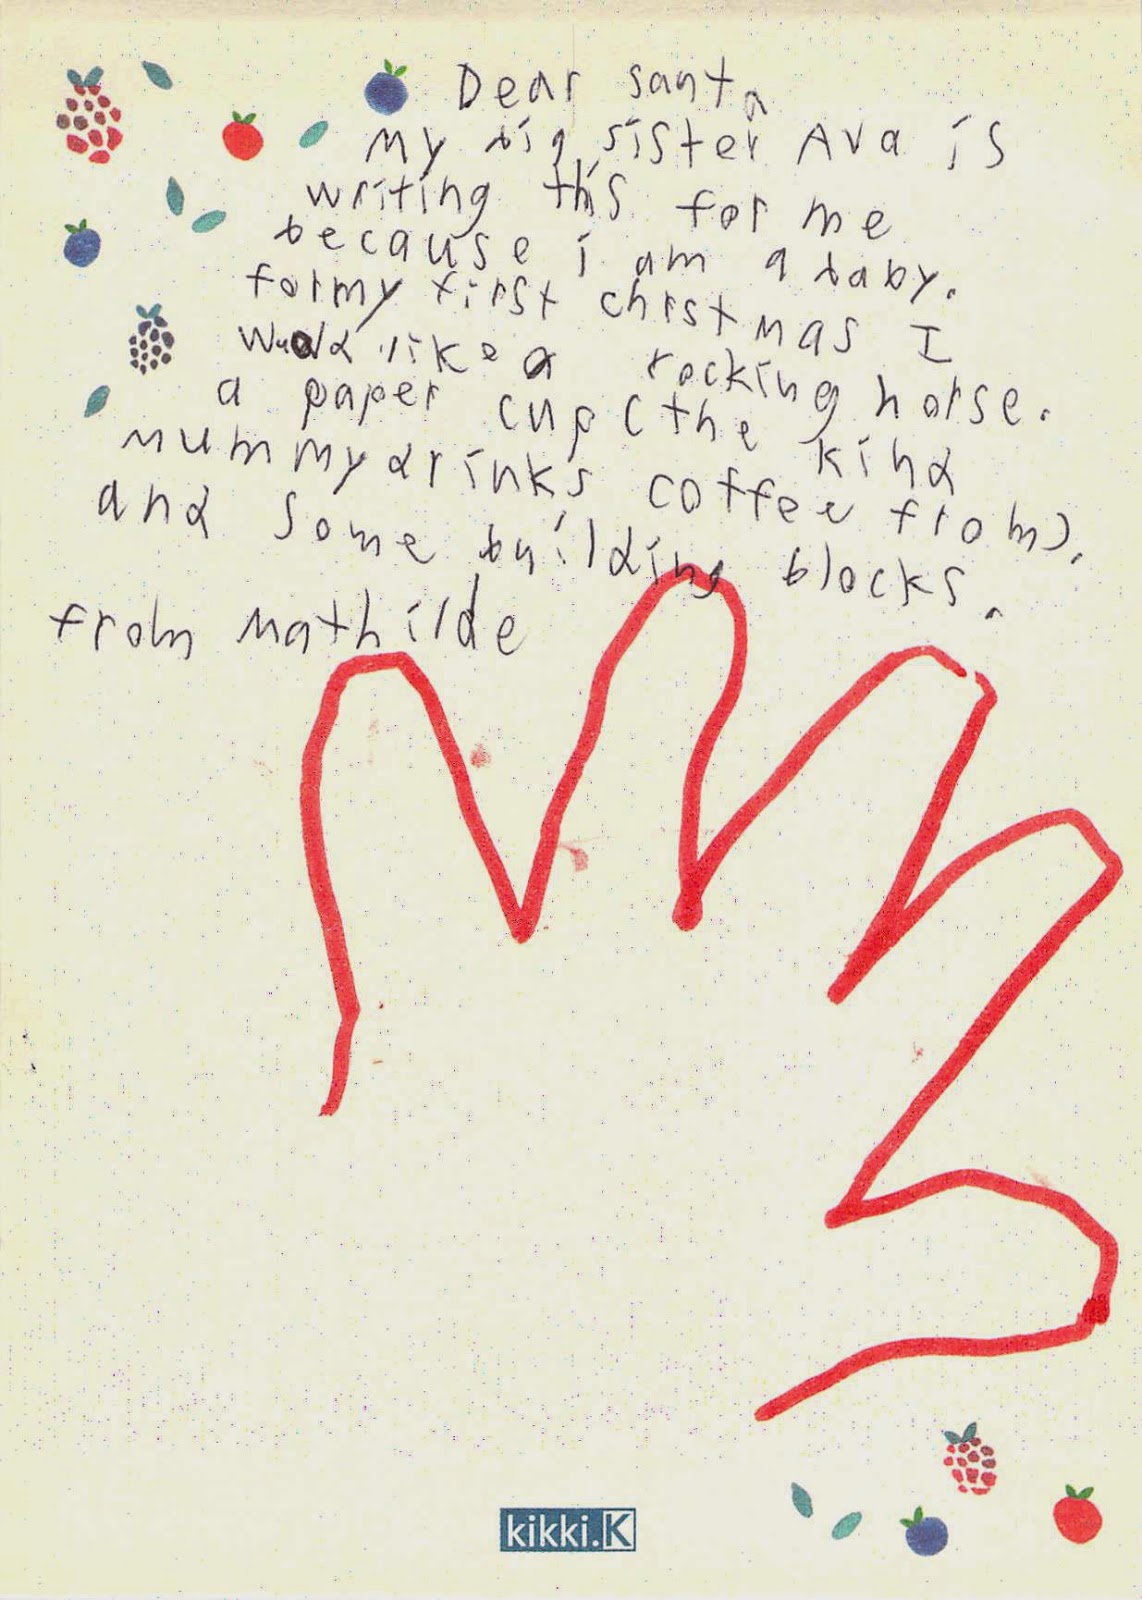 Dear santa
My big sister Ava is
writing this for me
because i am a baby.
for my first chrstmas I
Wuold like a rocking horse.
a paper cup (the kind
mummy drinks coffee from).
and some building blocks.
from Mathilde
kikki.K